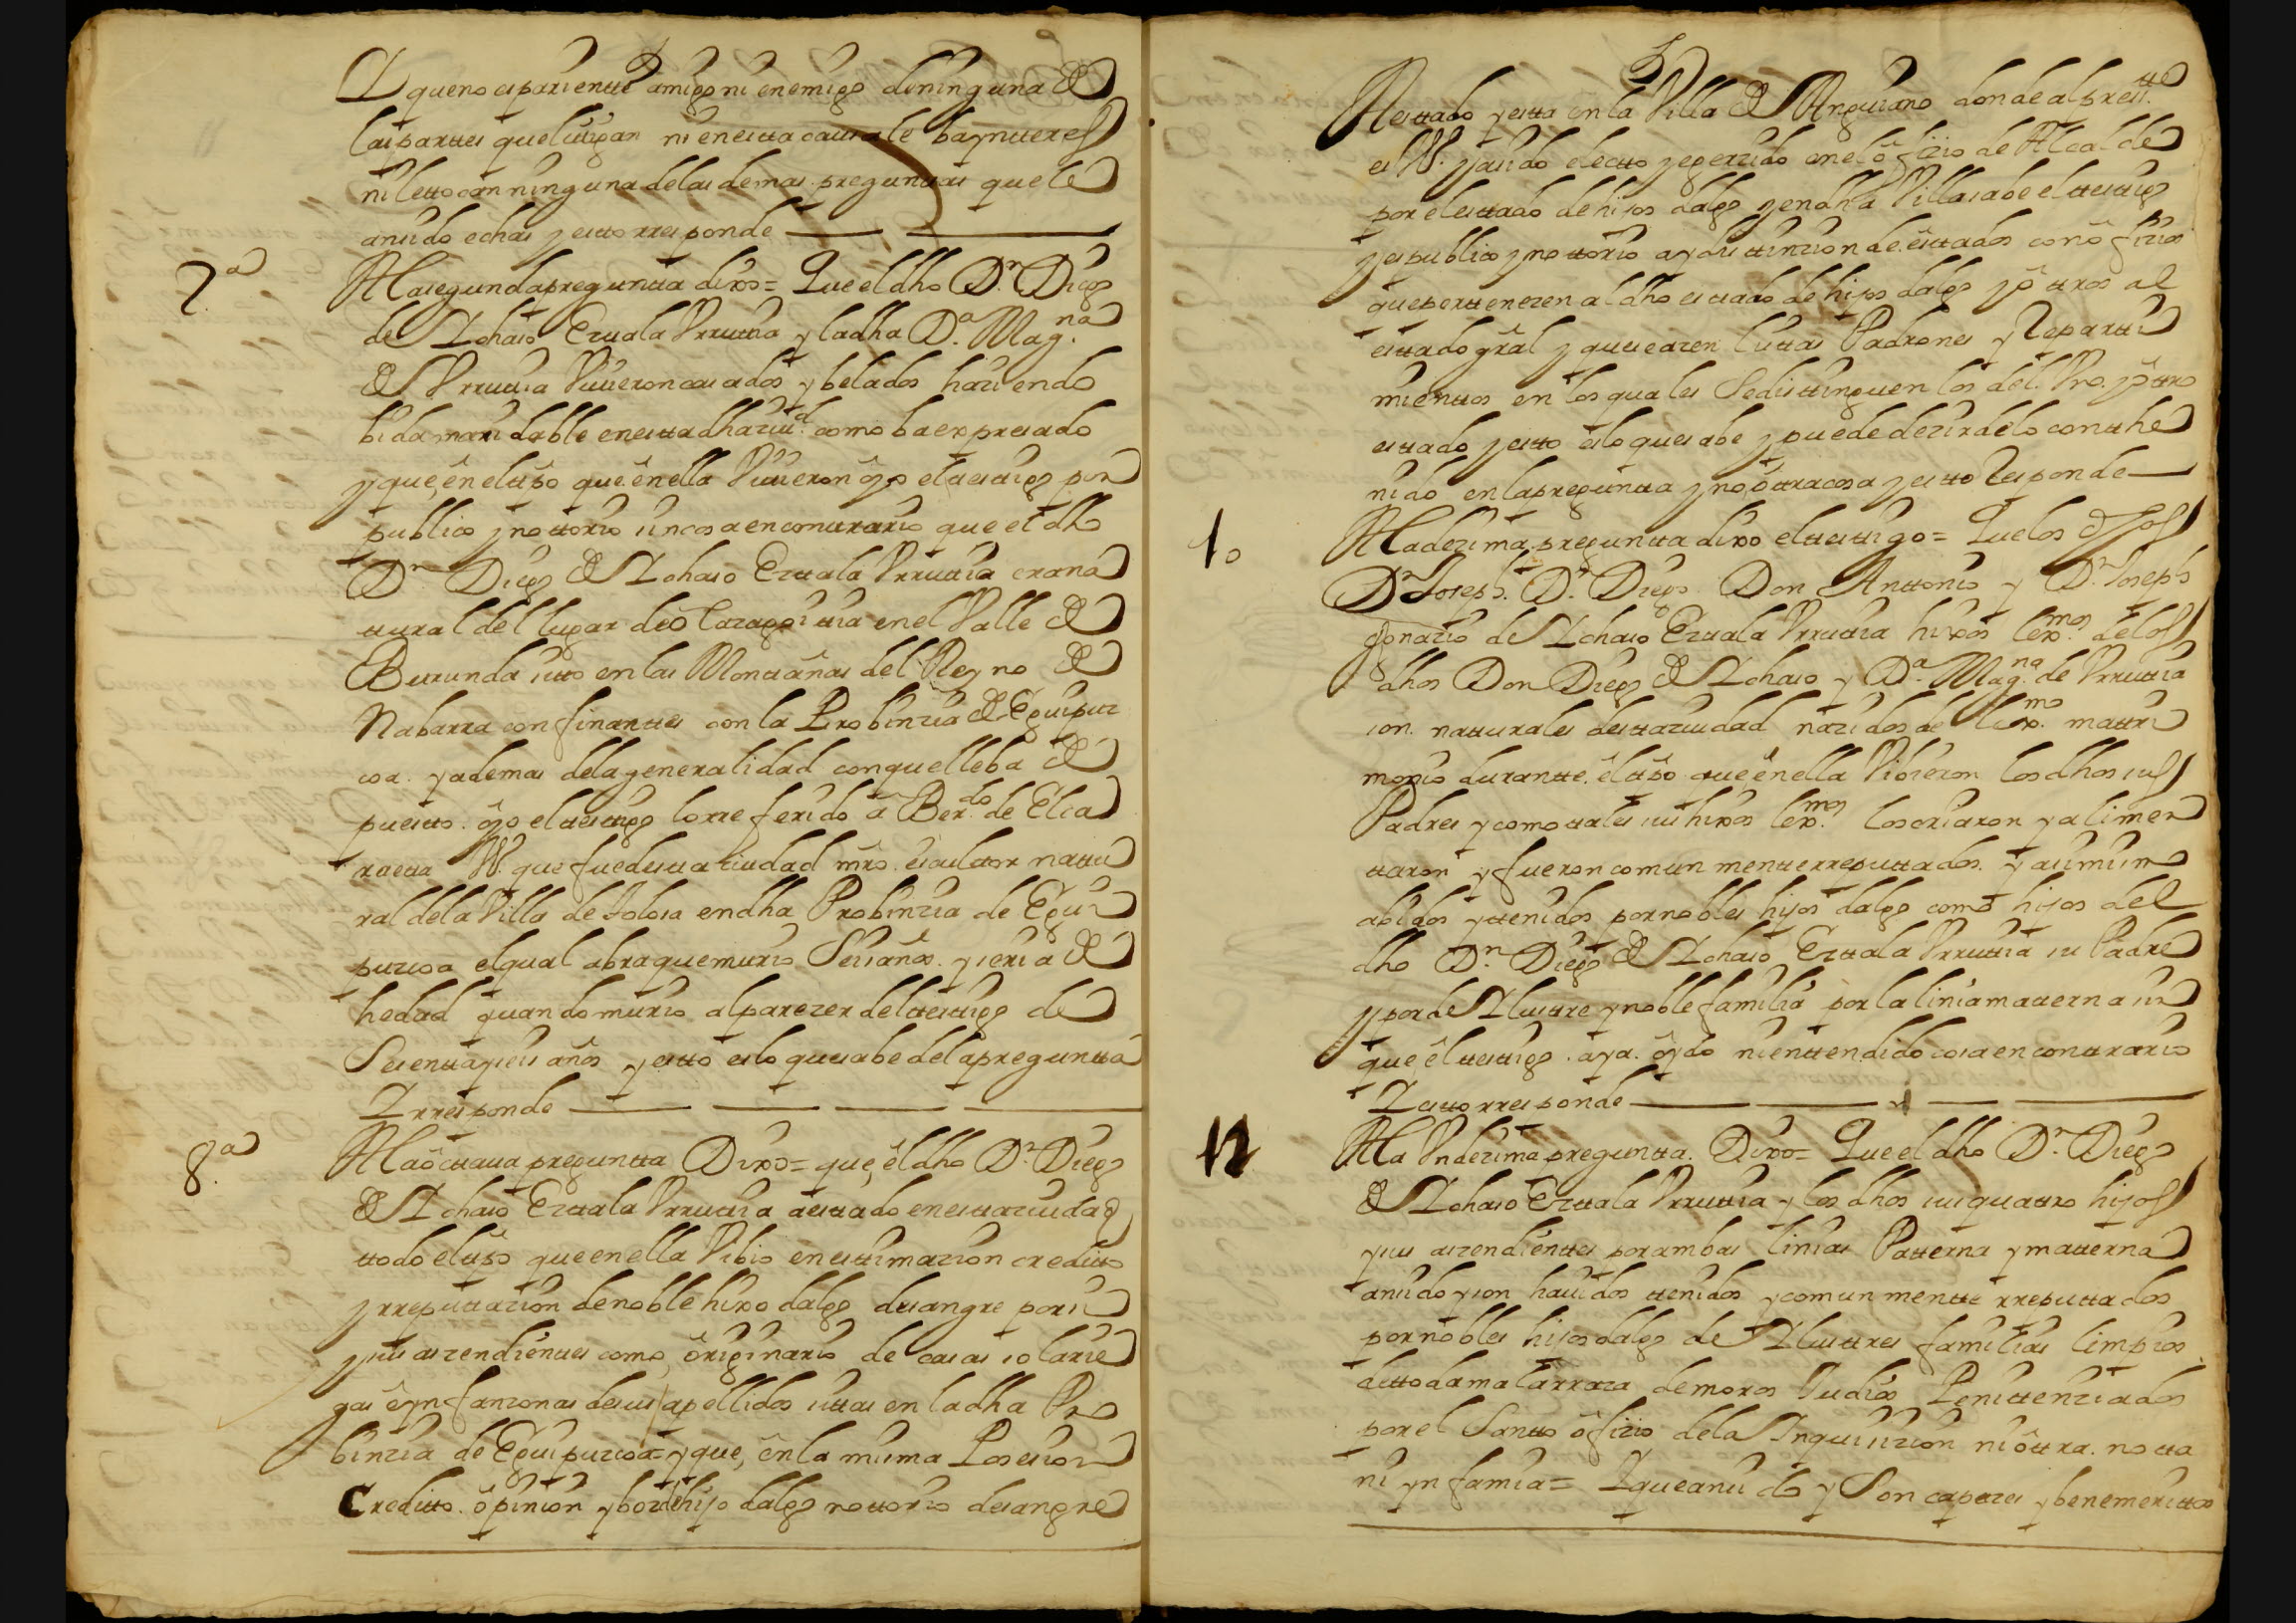 Y que no es pariente amigo ni enemigo de ninguna de
las partes que litigan ni en esta causa le ba ynteres
ni le tocan ninguna de las demas preguntas que le
an sido echas y esto rresponde
2ª
A la segunda pregunta dixo = Que el dho Dn. Diego
de Ychaso Ezttala Vrruttia y la dha Da. Magna
de Vrruttia Viuieron casados y belados haziendo
bida maridable en estta dha ziud. como ba expresado
y que, en el tpo que en ella Viuieron oyo el testtigo por
publico y nottorio sin cosa en conttrario que el dho
Dn Diego de Ychaso Ezttala Vrruttia era na
ttural del lugar de Olazagoittia en el Valle de
Burunda sitto en las Monttañas del Reyno de
Nabarra confinanttes con la Probinzia de Eguipuz
coa. y ademas de la generalidad con que lleba de
puestto. oyo el testtigo lo rreferido a Berdo. de Elca
raetta V. que fue destta ciudad mro. esculttor nattu
ral de la Villa de Tolosa en dha Probinzia de Egui
puzcoa el qual abra que murio Seis años. y seria de
hedad quando murio al parezer del testtigo de
Sesentta y seis años y estto es lo que sabe de la preguntta
Y rresponde
8.ª
A la octtaua preguntta Dixo = que, el dho Dn. Diego
de Ychaso Ezttala Vrruttia a esttado en estta ziudad
ttodo el tpo que en ella Vibio en esttimazion creditto
y rreputtazion de noble hixo dalgo de sangre por si
y sus aszendienttes como, originario de casas solarie
gas e ynfanzonas de sus apellidos sittas en la dha Pro
binzia de Eguipuzcoa = y que, en la misma Posesion
Creditto. opinion y boz de hijo dalgo nottorio de sangre
A esttado y estta en la Villa de Anguiano donde al presstte
es V. y a sido electto y exerzido en el ofizio de Alcalde
por el esttado de hijos dalgo y en dha Villa sabe el testtigo
y es publico y nottorio ay disttinzion de esttados con ofizios
que perttenezen al dho esttado de hijos dalgo y ottros al
esttado gral y que se azen listtas Padrones y Reparti
mienttos en los quales Se disttinguen los del Vno. y ottro
esttado y estto es lo que sabe y puede dezir de lo conthe
nido en la preguntta y no ottra cosa y estto Responde
10
A la dezima preguntta dixo el testtigo = Que los
Dn Joseph. Dn. Diego. Don Anttonio y Dn. Joseph
Ygnazio de Ychaso Ezttala Vrruttia hixos lexmos. de los
dhos Don Diego de Ychaso y Da. Magna. de Vrruttia
son natturales desttaziudad nazidos de lexmo. mattri
monio durantte. el tpo que en ella Vibieron los dhos sus
Padres y como ttales sus hixos lexmos. los criaron y alimen
ttaron y fueron comun mentte rreputtados. y asimismo
abidos y ttenidos por nobles hijos dalgo como hijos del
dho Dn. Diego de Ychaso Ezttala Vrruttia su Padre
y por de Ylusttre y noble familia por la linia matterna sin
que el testtigo. aya. oydo ni enttendido cosa en conttrario
Y estto rresponde
A la Vndezima preguntta. Dixo = Que el dho Dn. Diego
de Ychaso Ezttala Vrruttia y los dhos sus quattro hijos
y sus aszendienttes por ambas linias Patterna y matterna
an sido y son hauidos ttenidos y comun mentte rreputtados
por nobles hijos dalgo de Ylusttres familias limpios
de ttoda mala rraza de moros Judios Penittenziados
por el Santto ofizio de la Ynquisizion ni ottra. notta
ni ynfamia = Y que an sido y Son capazes y benemerittos